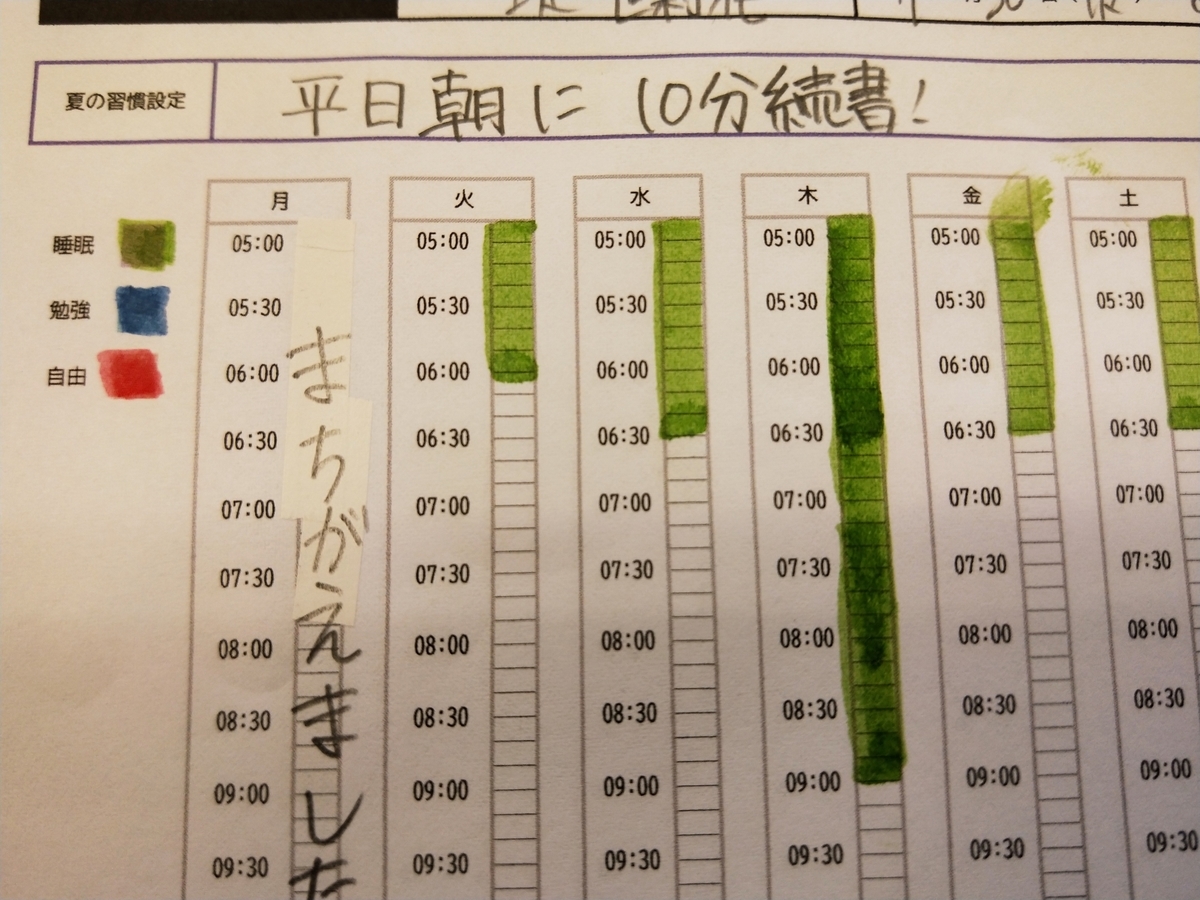 夏の習慣設定
平日朝に 10分続書!
睡眠
勉強
自由
月
05:00
05:30
06:00
06:30
07:00
07:30
08:00
08:30
09:00
09:30
まちがえました
火
05:00
05:30
06:00
06:30
07:00
07:30
08:00
08:30
09:00
09:30
水
05:00
05:30
06:00
06:30
07:00
07:30
08:00
08:30
09:00
09:30
木
05:00
05:30
06:00
06:30
07:00
07:30
08:00
08:30
09:00
09:30
金
05:00
05:30
06:00
06:30
07:00
07:30
08:00
08:30
09:00
09:30
土
05:00
05:30
06:00
06:30
07:00
07:30
08:00
08:30
09:00
09:30